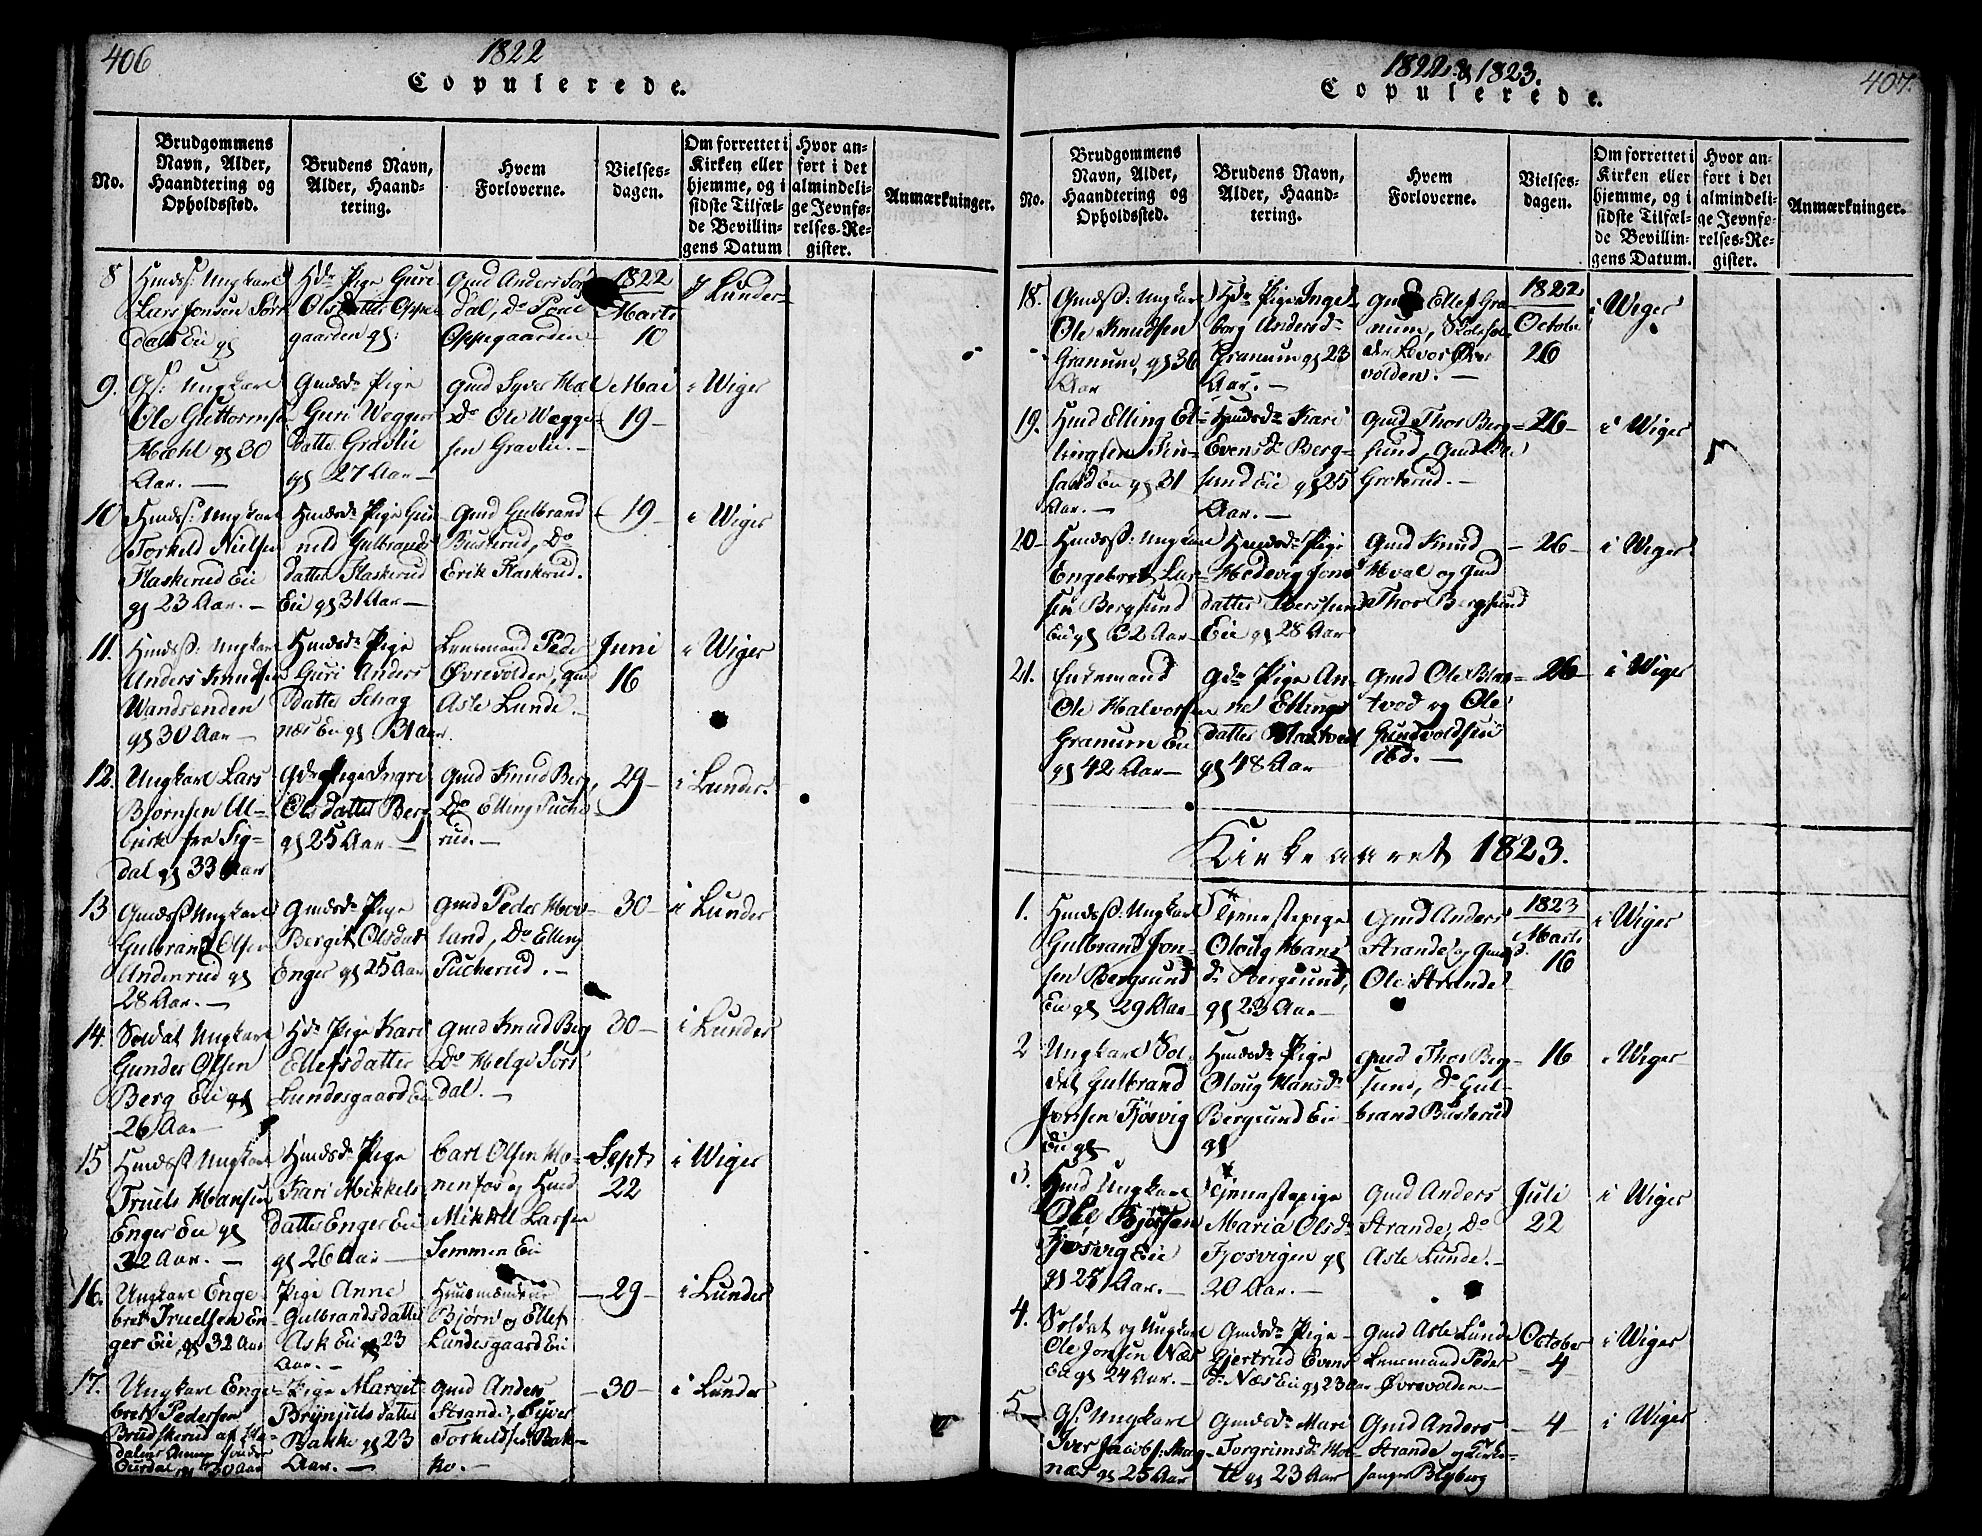 406
1822
Copulerede.
No.
Brudgommens
Navn, Alder,
Haandtering og
Opholdssted.
Brudens Navn,
Alder, Haand-
tering.
Hvem
Forloverne.
Vielses-
dagen.
Om forrettet i
Kirken eller
hjemme, og i
sidste Tilfæl-
de Bevillin-
gens Datum
Hvor an-
ført i det
almindeli-
ge Jevnfø-
relses-Re-
gister.
Anmærkninger.
8
Lars Jonsen Sør
dals Eie gl
Hds Pige Guri
Olsdatter Oppe
gaarden gl:
Gmd Anders Sør
dal, Do
Oppegaarden
1822
Marts
10
i Lunder
9.
Gs: Ungkarl
Ole Guttormsen
Mæhl gl 30
Aar. —
Gmdsdr Pige
Guri Wegger
datter Gravlie
gl 27 Aar —
Gmd Syver Mæl
Do Ole Wegge
sen Gravlie. —
Mai
19 —
i Wiger
10
Hmdss: Ungkarl
Torkild Nielsen
Flaskerud Eie
gl 23 Aar. —
Hmdsdr Pige Gun
nild Gulbrands
datter Flaskerud
Eie gl 31 Aar —
Gmd Gulbrand
Buskerud, Do
Erik Flaskerud.
19 —
i Wiger
11.
Hmdss: Ungkarl
Anders Knudsen
Wandsenden
gl 30 Aar —
Hmdsdr Pige
Guri Anders
datter Schag
næs Eie gl 31 Aar.
Lensmand Peder
Øvrevolden, Gmd
Asle Lunde. —
Juni
16
i Wiger
12.
Ungkarl Lars
Bjørnsen Al-
birk fra Sig-
dal gl 33 Aar
Gdr Pige Ingri
Olsdatter Berg
gl 25 Aar —
Gmd Knud Berg,
Do Elling Pucke
rud. —
29 —
i Lunder.
13
Gmdss Ungkarl
Gulbrand Olsen
Anderrud gl
28 Aar. —
Gmdsdr Pige
Bergit Olsdat
Enger gl 25 Aar
Gmd Peder Hov-
land, Do Elling
Puckerud. —
30 —
i Lunder
14.
Soldat Ungkarl
Gunder Olsen
Berg Eie gl
26 Aar —
Hdr Pige Kari
Ellefsdatter
Lundesgaard Eie
Gmd Knud Berg
Do Helge Sørs
dal. —
30 —
i Lunder
15
Hmdss Ungkarl
Truels Hansen
Enger Eie gl
32 Aar. —
Hmdsdr Pige
Kari Mikkels
datter Enger Eie
gl 26 Aar —
Carl Olsen Ho-
nenfos og Hmd
Mikkel Larsen
Semmen Eie
Sept.
22
i Wiger
16.
Ungkarl Enge-
bret Truelsen En-
ger Eie, gl 32 Aar
Pige Anne
Gulbrandsdatter
Ask Eie gl 23
Aar. —
Huusmændene
Bjørn og Ellef
Lundesgaard Eie
— 29 —
i Lunder
17.
Ungkarl Enge-
bret Pedersen
Brudskerud af
Pige Margit
Brynjulsdatter
Bakke gl 23
Aar. —
Gmd Anders
Strande, Syver
Torkildsen Bak-
ke. —
— 30 —
i Lunder
1822 & 1823.
407.
Copulerede.
No.
Brudgommens
Navn, Alder,
Haandtering og
Opholdssted.
Brudens Navn,
Alder, Haand-
tering.
Hvem
Forloverne.
Vielses-
dagen.
Om forrettet i
Kirken eller
hjemme, og i
sidste Tilfæl-
de Bevillin-
gens Datum.
Hvor an-
ført i det
almindeli-
ge Jevnfø-
relses-Re-
gister.
Anmærkninger.
18.
Gmdss: Ungkarl
Ole Knudsen
Granum, gl 36
Aar
Hdr Pige Inge
borg Andersd
Granum gl 23
Aar. —
Gmd Ellef Gra
num, Skolehol
der Levor Øvre
volden. —
1822
October
26
i Wiger
19.
Hmd Elling El-
lingsen Kin-
sand Eie gl 31
Aar. —
Hmdsdr Kari
Evensdr Berg-
sund Eie gl 25
Aar. —
Gmd Thor Berg-
sund, Gmd
Groterud. —
26 —
i Wiger
20 —
Hmdss: Ungkarl
Engebret Lar-
sen Bergsund
Eie gl 32 Aar
Hmdsdr Pige
Hedevig Jons
datter Bersund
Eie gl 28 Aar
Gmd Knud
Hval og Gmd
Thor Bergsund
— 26 —
i Wiger
21.
Enkemand
Ole Halvorsen
Granum Eie
gl 42 Aar —
Gdr Pige An-
ne Ellings
datter
gl 48 Aar
Gmd Ole Blag-
tved og Ole
Gundvoldsen
ibd. —
26
i Wiger
Kirkeaaret 1823.
1.
Hmdss: Ungkarl
Gulbrand Jon-
sen Bergsund
Eie gl 29 Aar
Tjenestepige
Oloug Hans
dr Bergsund,
gl 23 Aar —
Gmd Anders
Strande og Gmd
Ole Strande
1823
Marts
16
i Wiger
2
Ungkarl Sol-
dat Gulbrand
Jonsen Fjøsvig
Eie gl —
Hmdsdr Pige
Oloug Hansdr
Bergsund Eie
gl
Gmd Thor Berg-
sund, Do Gul-
brand Buskerud
16
i Wiger
3.
Hmd Ungkarl
Ole Bjørsen
Fjøsvig Eie
gl 27 Aar. —
Tjenestepige
Maria Olsdr
Fjosvigen gl
20 Aar. —
Gmd Anders
Strande, Do
Asle Lunde. —
Juli
22
i Wiger
4.
Soldat og Ungkarl
Ole Jonsen Næs
Eie gl 24 Aar. —
Gmdsdr Pige
Gjertrud Evens
dr Næs Eie gl 23 Aar
Gmd Asle Lunde
Lensmand Peder
Øvrevolden —
October
— 4
i Wiger
5
Gs: Ungkarl
Iver Jacobs: Skag
næs gl 25 Aar
Gmdsdr Mari
Torgrimsdr Hol
te gl 23 Aar
Gmd Anders
Strande og Kirke-
sanger Blyberg
— 4 —
i Wiger